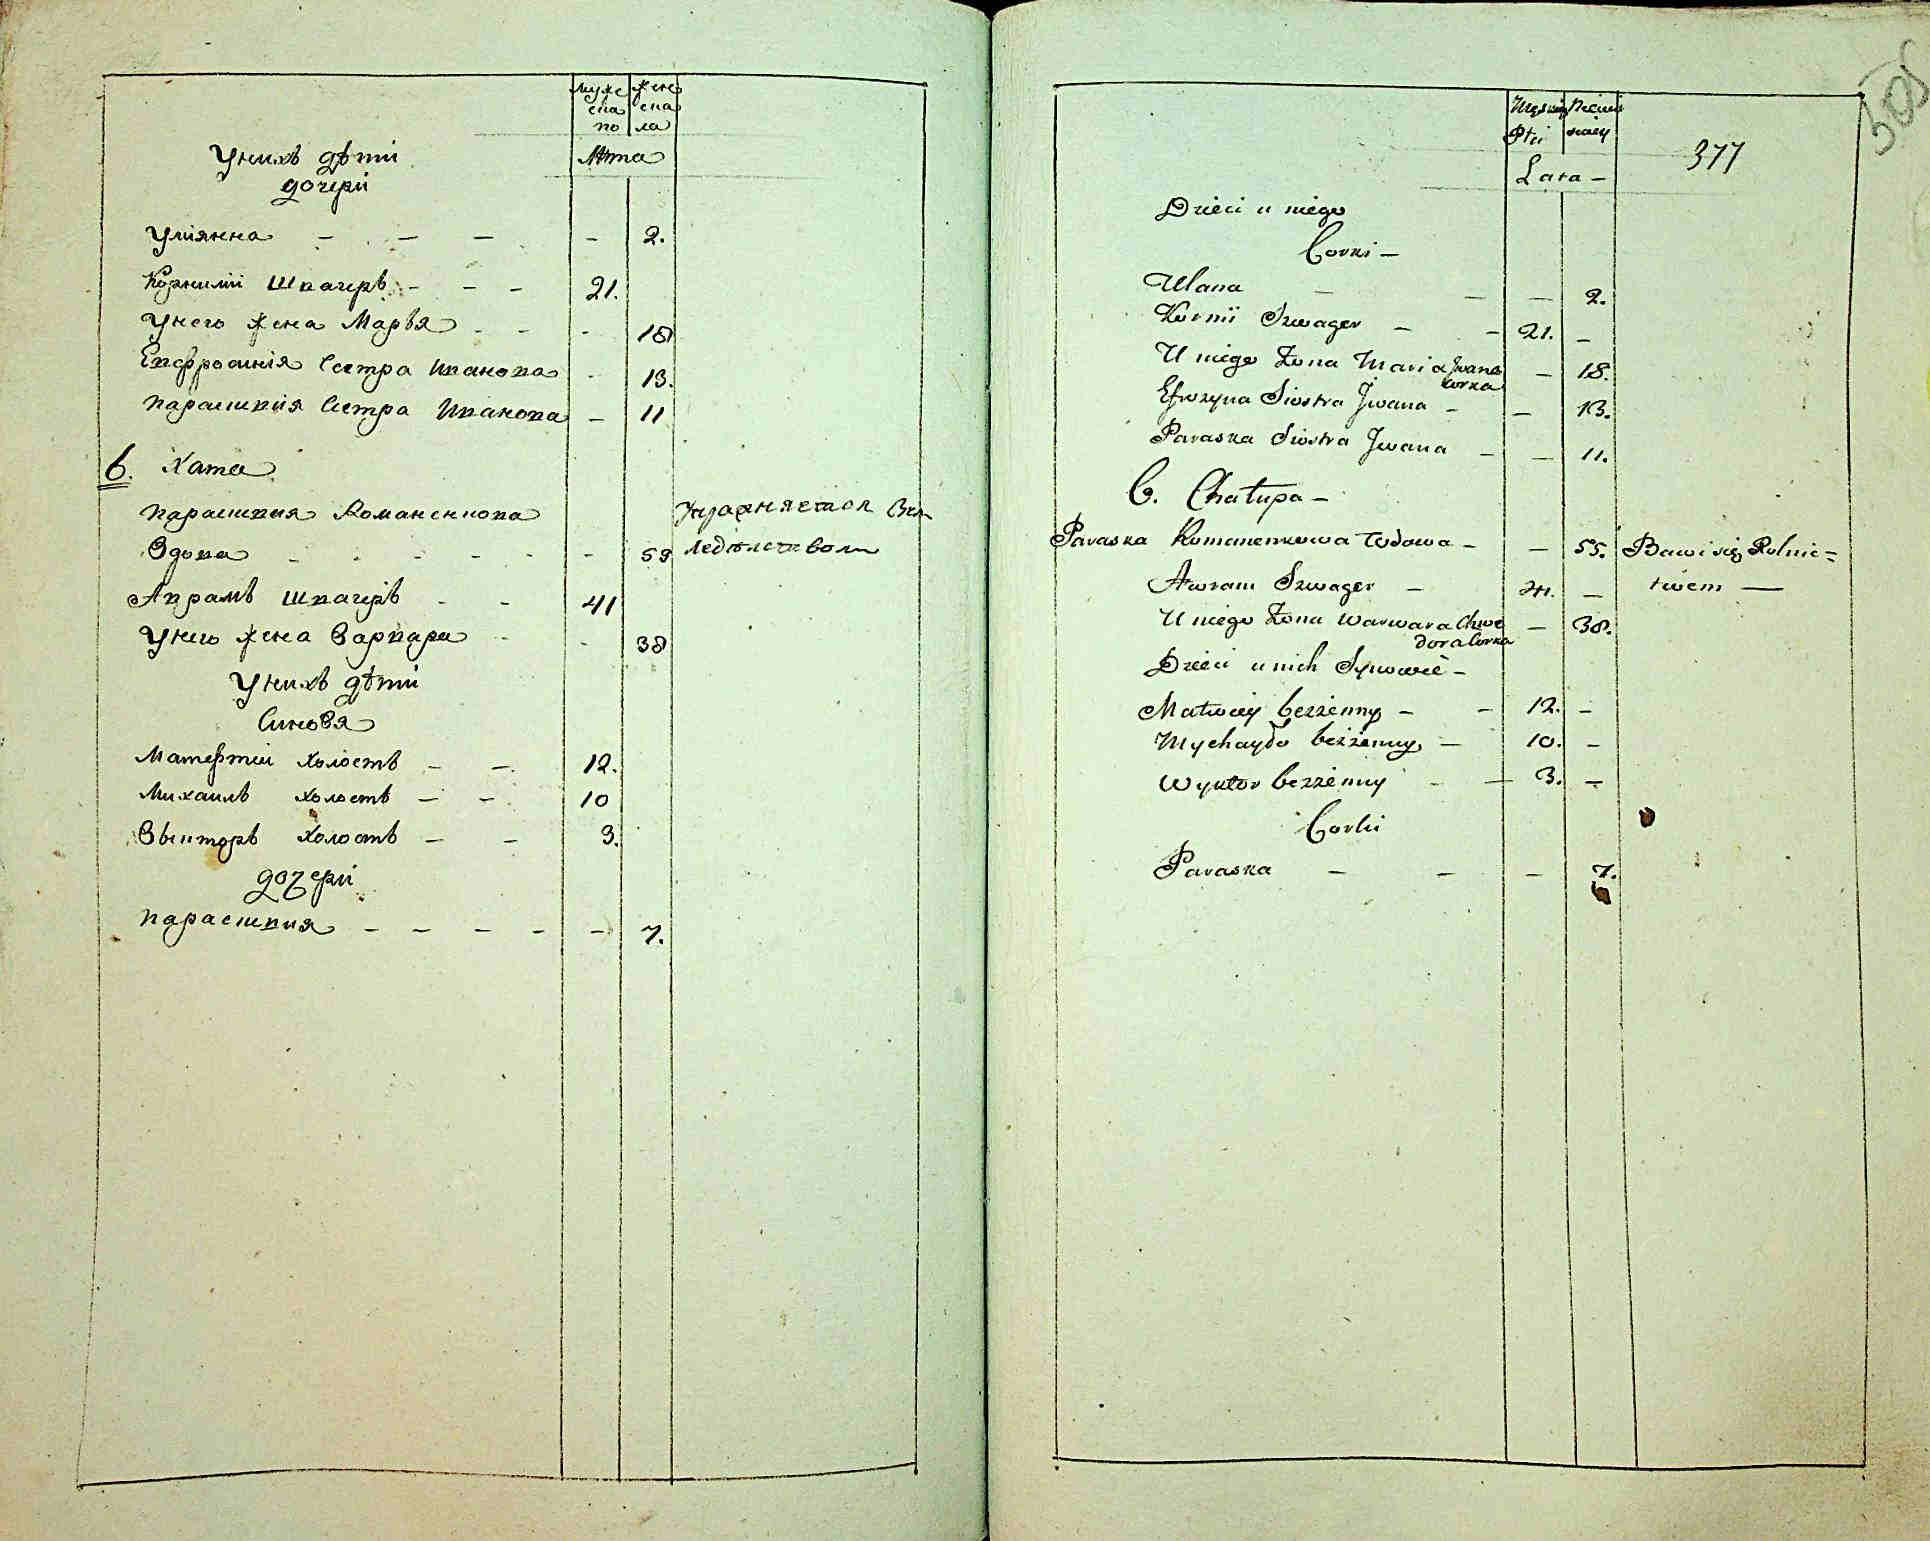 Муже Жене
ска ска
по ла
Унихъ дѣти Лѣта
дочери
Улиянна - - - - 2.
Корнилий Швагеръ - - - 21.
Унего жена Марья - - - 18
Евфросинія Сестра Иванова - 13.
Параскивия Сестра Иванова - 11
6. Хата
Параскивия Романенкова Упражняется Зем
Вдова - - - - - - 59 ледѣлствомъ
Аврамъ Швагеръ - - 41
Унего жена Варвара - - 38
Унихъ дѣти
Синовя
Матефтій холостъ - - 12.
Михаилъ холостъ - - 10
Викторъ холостъ - - 3.
дочери
Параскивия - - - - - 7.
305
Męskiey Niewie
Płci sciey
377
Lata -
Dzieci u niego
Corki -
Ulana - - - 2.
Kornii Szwager - - 21. -
U niego Żona Maria Iwana - 18.
Corka
Efrozyna Siostra Jwana - - 13.
Paraska Siostra Jwana - - 11.
6. Chałupa -
Paraska Romanenkowa Wdowa - - 55. Bawi się Rolnic=
Awram Szwager - 41. - twem -
U niego Żona Warwara Chwe - 38.
dora Corka
Dzieci u nich Synowie -
Matwiey bezżenny - - 12. -
Mychayło bezżenny - 10. -
Wyktor bezżenny - - 3. -
Corki
Paraska - - - 7.